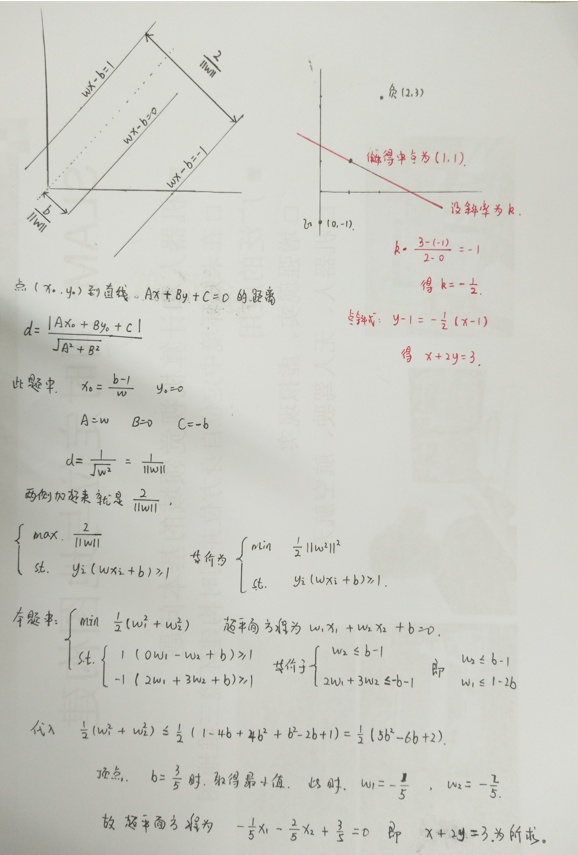 wx-b=1
2/||w||
wx-b=0
wx-b=-1
b/||w||
负(2,3)
解得中点为(1,1).
设斜率为k.
正(0,-1).
k·(3-(-1))/(2-0) = -1
得 k=-1/2.
点斜式: y-1=-1/2(x-1)
得 x+2y=3.
点(x₀,y₀)到直线 Ax+By+C=0的距离
d=|Ax₀+By₀+C|/√(A²+B²)
此题中. x₀=(b-1)/w y₀=0
A=w B=0 C=-b
d=1/√w² = 1/||w||
两侧加起来就是 2/||w|| .
{ max. 2/||w|| 等价为 { min 1/2||w²||²
st. yi(wxi+b)≥1 st. yi(wxi+b)≥1.
本题中: { min 1/2(w₁²+w₂²) 超平面方程为 w₁x₁+w₂x₂+b=0.
st. { 1(0w₁-w₂+b)≥1 等价于 { w₂≤b-1 即 w₂≤b-1
-1(2w₁+3w₂+b)≥1 2w₁+3w₂≤-b-1 w₁≤1-2b
代入 1/2(w₁²+w₂²)≤1/2(1-4b+4b²+b²-2b+1)=1/2(5b²-6b+2).
顶点. b=3/5时.取得最小值. 此时. w₁=-1/5 , w₂=-2/5.
故超平面方程为 -1/5x₁-2/5x₂+3/5=0 即 x+2y=3.为所求。